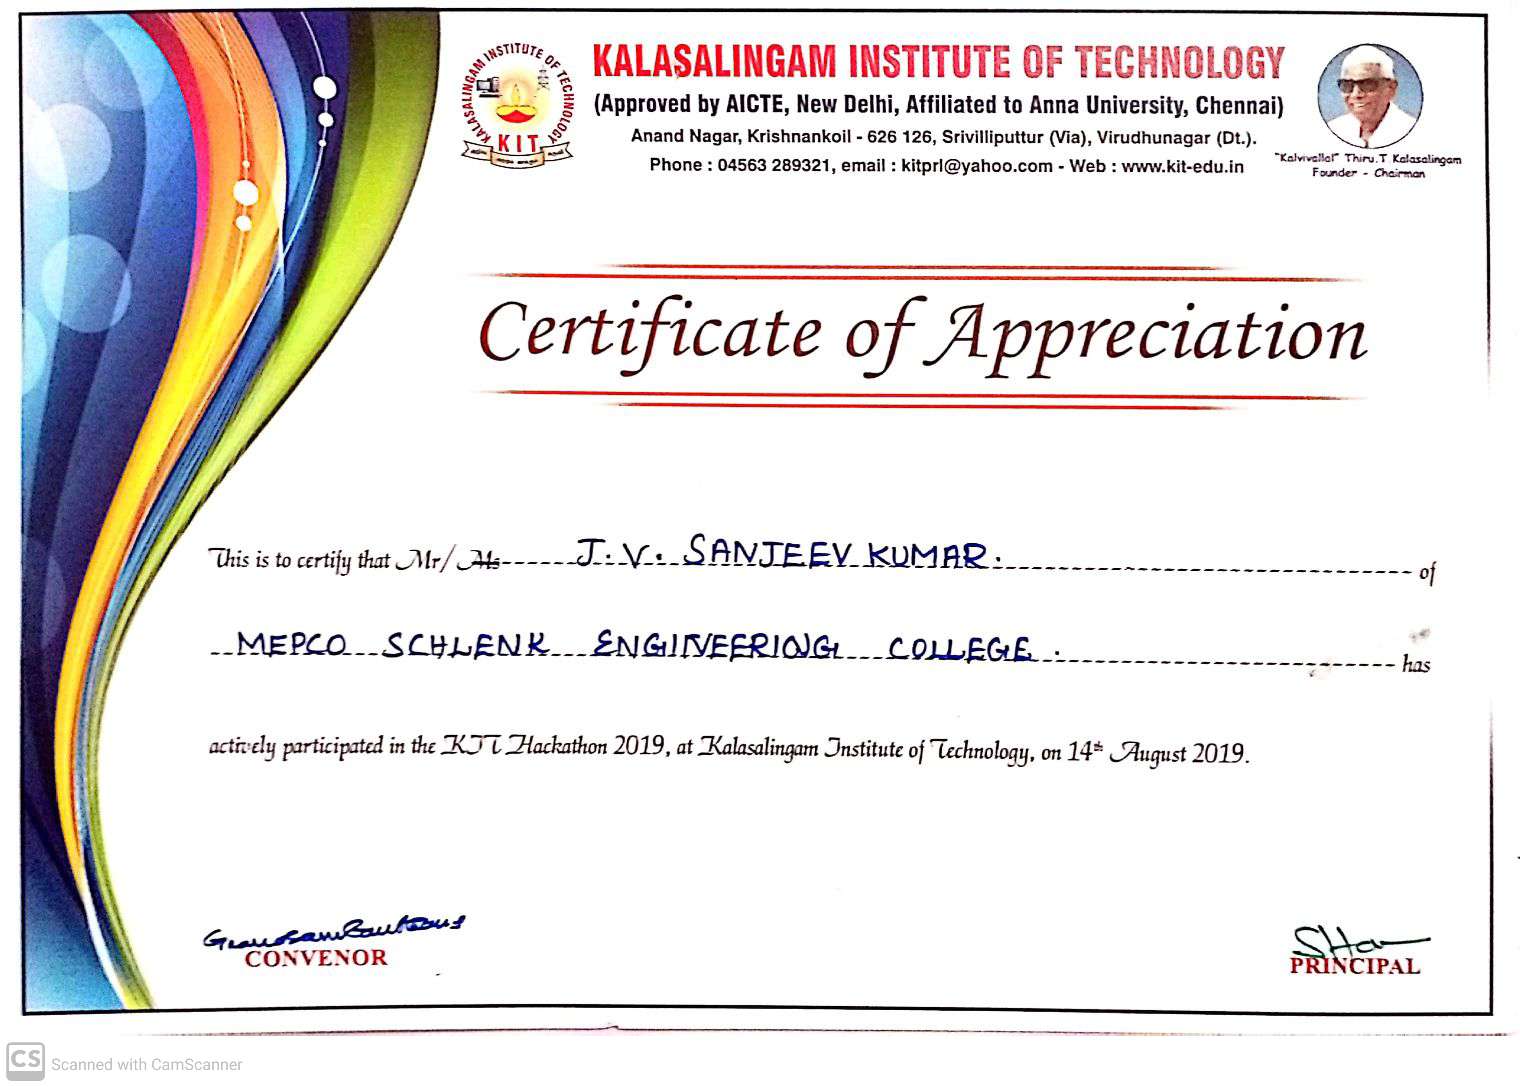 KALASALINGAM INSTITUTE OF TECHNOLOGY
KIT
KALASALINGAM INSTITUTE OF TECHNOLOGY
(Approved by AICTE, New Delhi, Affiliated to Anna University, Chennai)
Anand Nagar, Krishnankoil - 626 126, Srivilliputtur (Via), Virudhunagar (Dt.).
Phone : 04563 289321, email : kitprl@yahoo.com - Web : www.kit-edu.in
"Kalvivallal" Thiru.T Kalasalingam
Founder - Chairman
Certificate of Appreciation
This is to certify that Mr/ Ms J. V. SANJEEV KUMAR. of
MEPCO SCHLENK ENGINEERING COLLEGE. has
actively participated in the KIT Hackathon 2019, at Kalasalingam Institute of Technology, on 14th August 2019.
CONVENOR
PRINCIPAL
CS Scanned with CamScanner